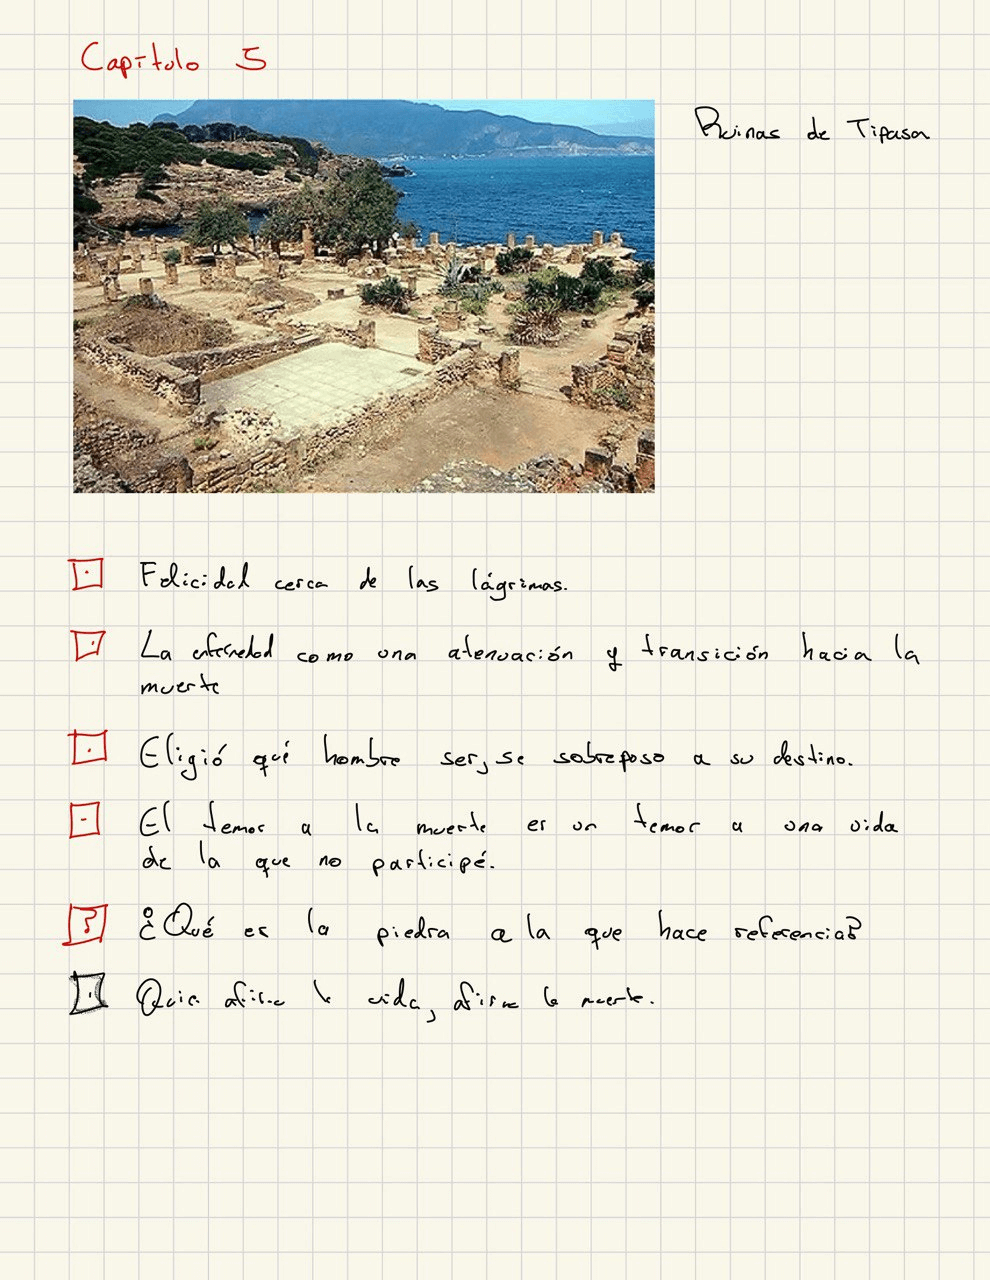 Capítulo 5
Ruinas de Tipasa
Felicidad cerca de las lágrimas.
La enfermedad como una atenuación y transición hacia la
muerte
Eligió qué hombre ser, se sobreposo a su destino.
El temor a la muerte es un temor a una vida
de la que no participé.
? ¿Qué es la piedra a la que hace referencia?
Quien afirma la vida, afirma la muerte.